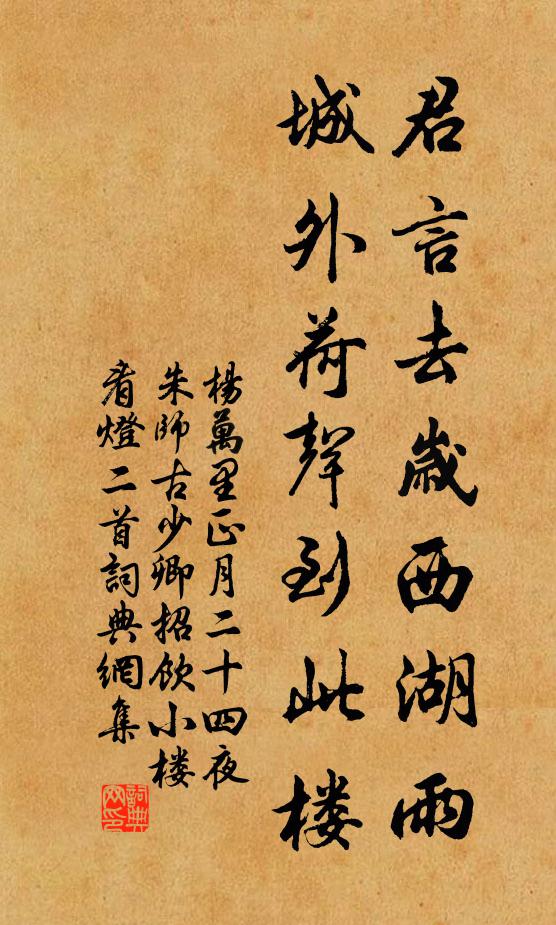 君言去歲西湖雨
城外荷聲到此楼
楊萬里正月二十四夜
朱師古少卿招飲小楼
看燈二首詞典網集
詞典網印